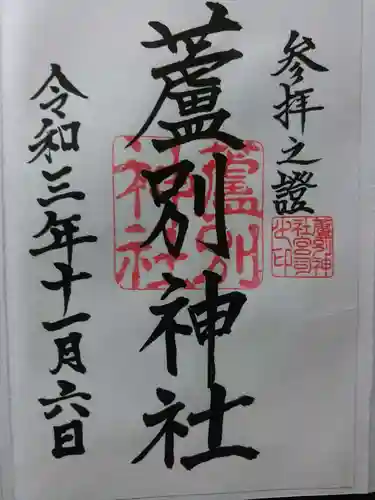 参拝之證
蘆別神社
令和三年十一月六日
蘆別
神社
蘆別神
社宮司
之印